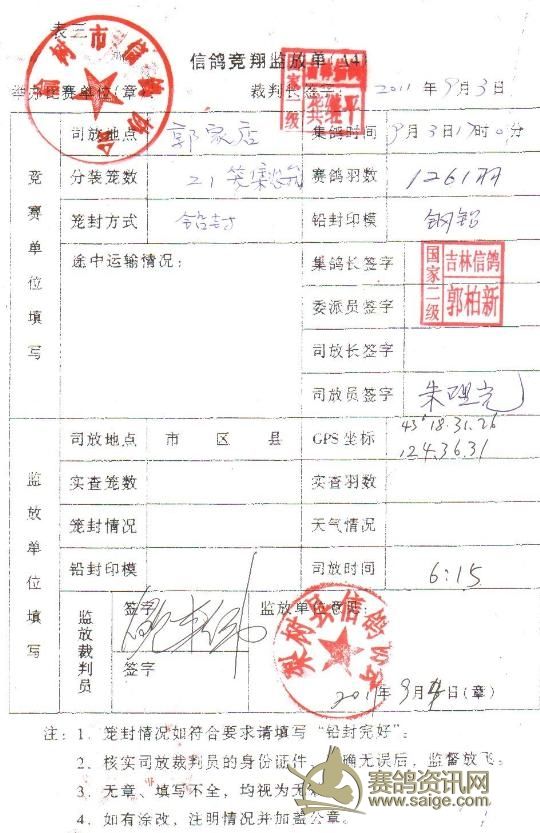 表三
信鸽竞翔监放单(A4)
举办比赛单位(章
裁判长签字: 2011 年 9 月 3 日
榆树市信鸽协会
国家一级
吉林信鸽
继平
竞赛单位填写
司放地点 郭家店 集鸽时间 9月3日17时0分
分装笼数 21笼 赛鸽羽数 1261羽
笼封方式 铅封 铅封印模 钢铅
途中运输情况: 集鸽长签字
国家二级
吉林信鸽
郭柏新
委派员签字
司放长签字
司放员签字
监放单位填写
司放地点 市 区 县 GPS坐标 43°18.31.26
124.36.31
实查笼数 实查羽数
笼封情况 天气情况
铅封印模 司放时间 6:15
监放裁判员
签字 监放单位意见:
签字
梨树县信鸽协会
2011年9月4日(章)
注: 1、笼封情况如符合要求请填写“铅封完好”。
2、核实司放裁判员的身份证件、确无误后，监督放飞。
3、无章、填写不全，均视为无
4、如有涂改，注明情况并加盖公章。
赛鸽资讯网
www.saige.com